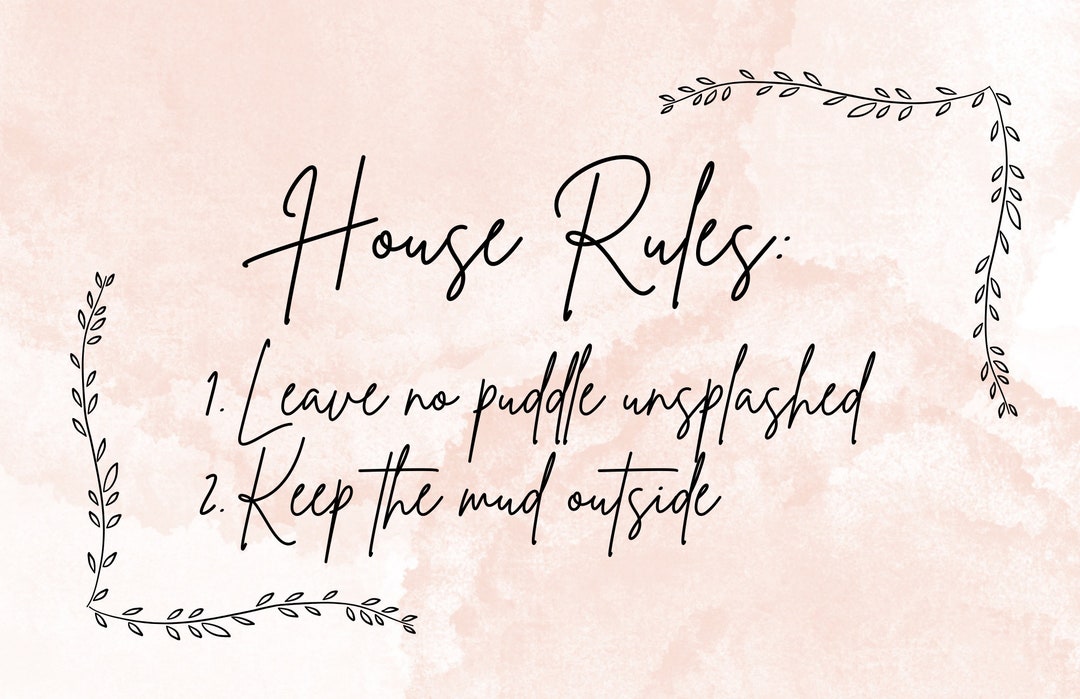 House Rules:
1. Leave no puddle unsplashed
2. Keep the mud outside